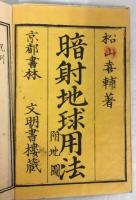 松山幸輔著
暗射地球用法
附地圖
京都書林 文明書樓藏